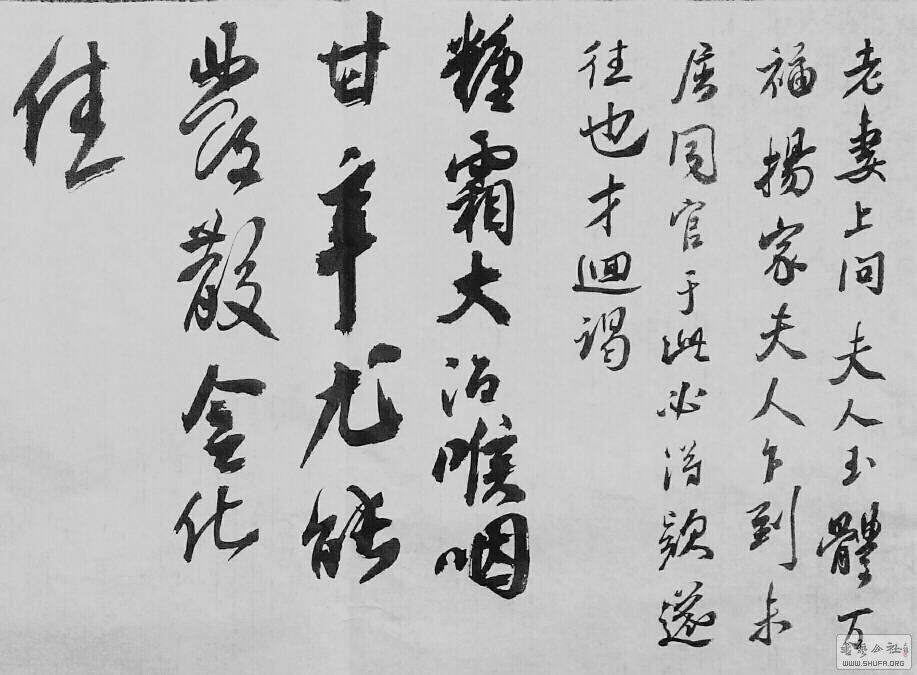 老妻上問夫人玉體万
福揚家夫人乍到未
同官于此必得款遂
往也才迴謁
糖霜大治喉咽
甘辛尤能
發散含化
佳
書藝公社
WWW.SHUFA.ORG